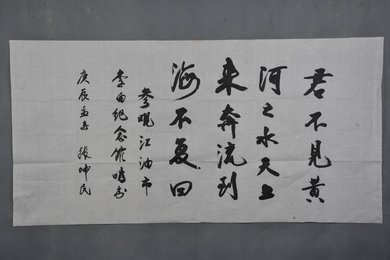 君不见黄
河之水天上
来奔流到
海不复回
参观江油市
李白纪念馆唯书
庚辰孟冬 张坤民